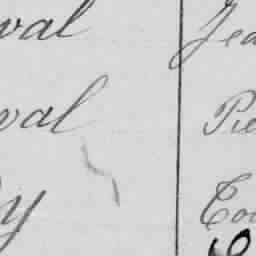 val Jea
val Pie
y Cou